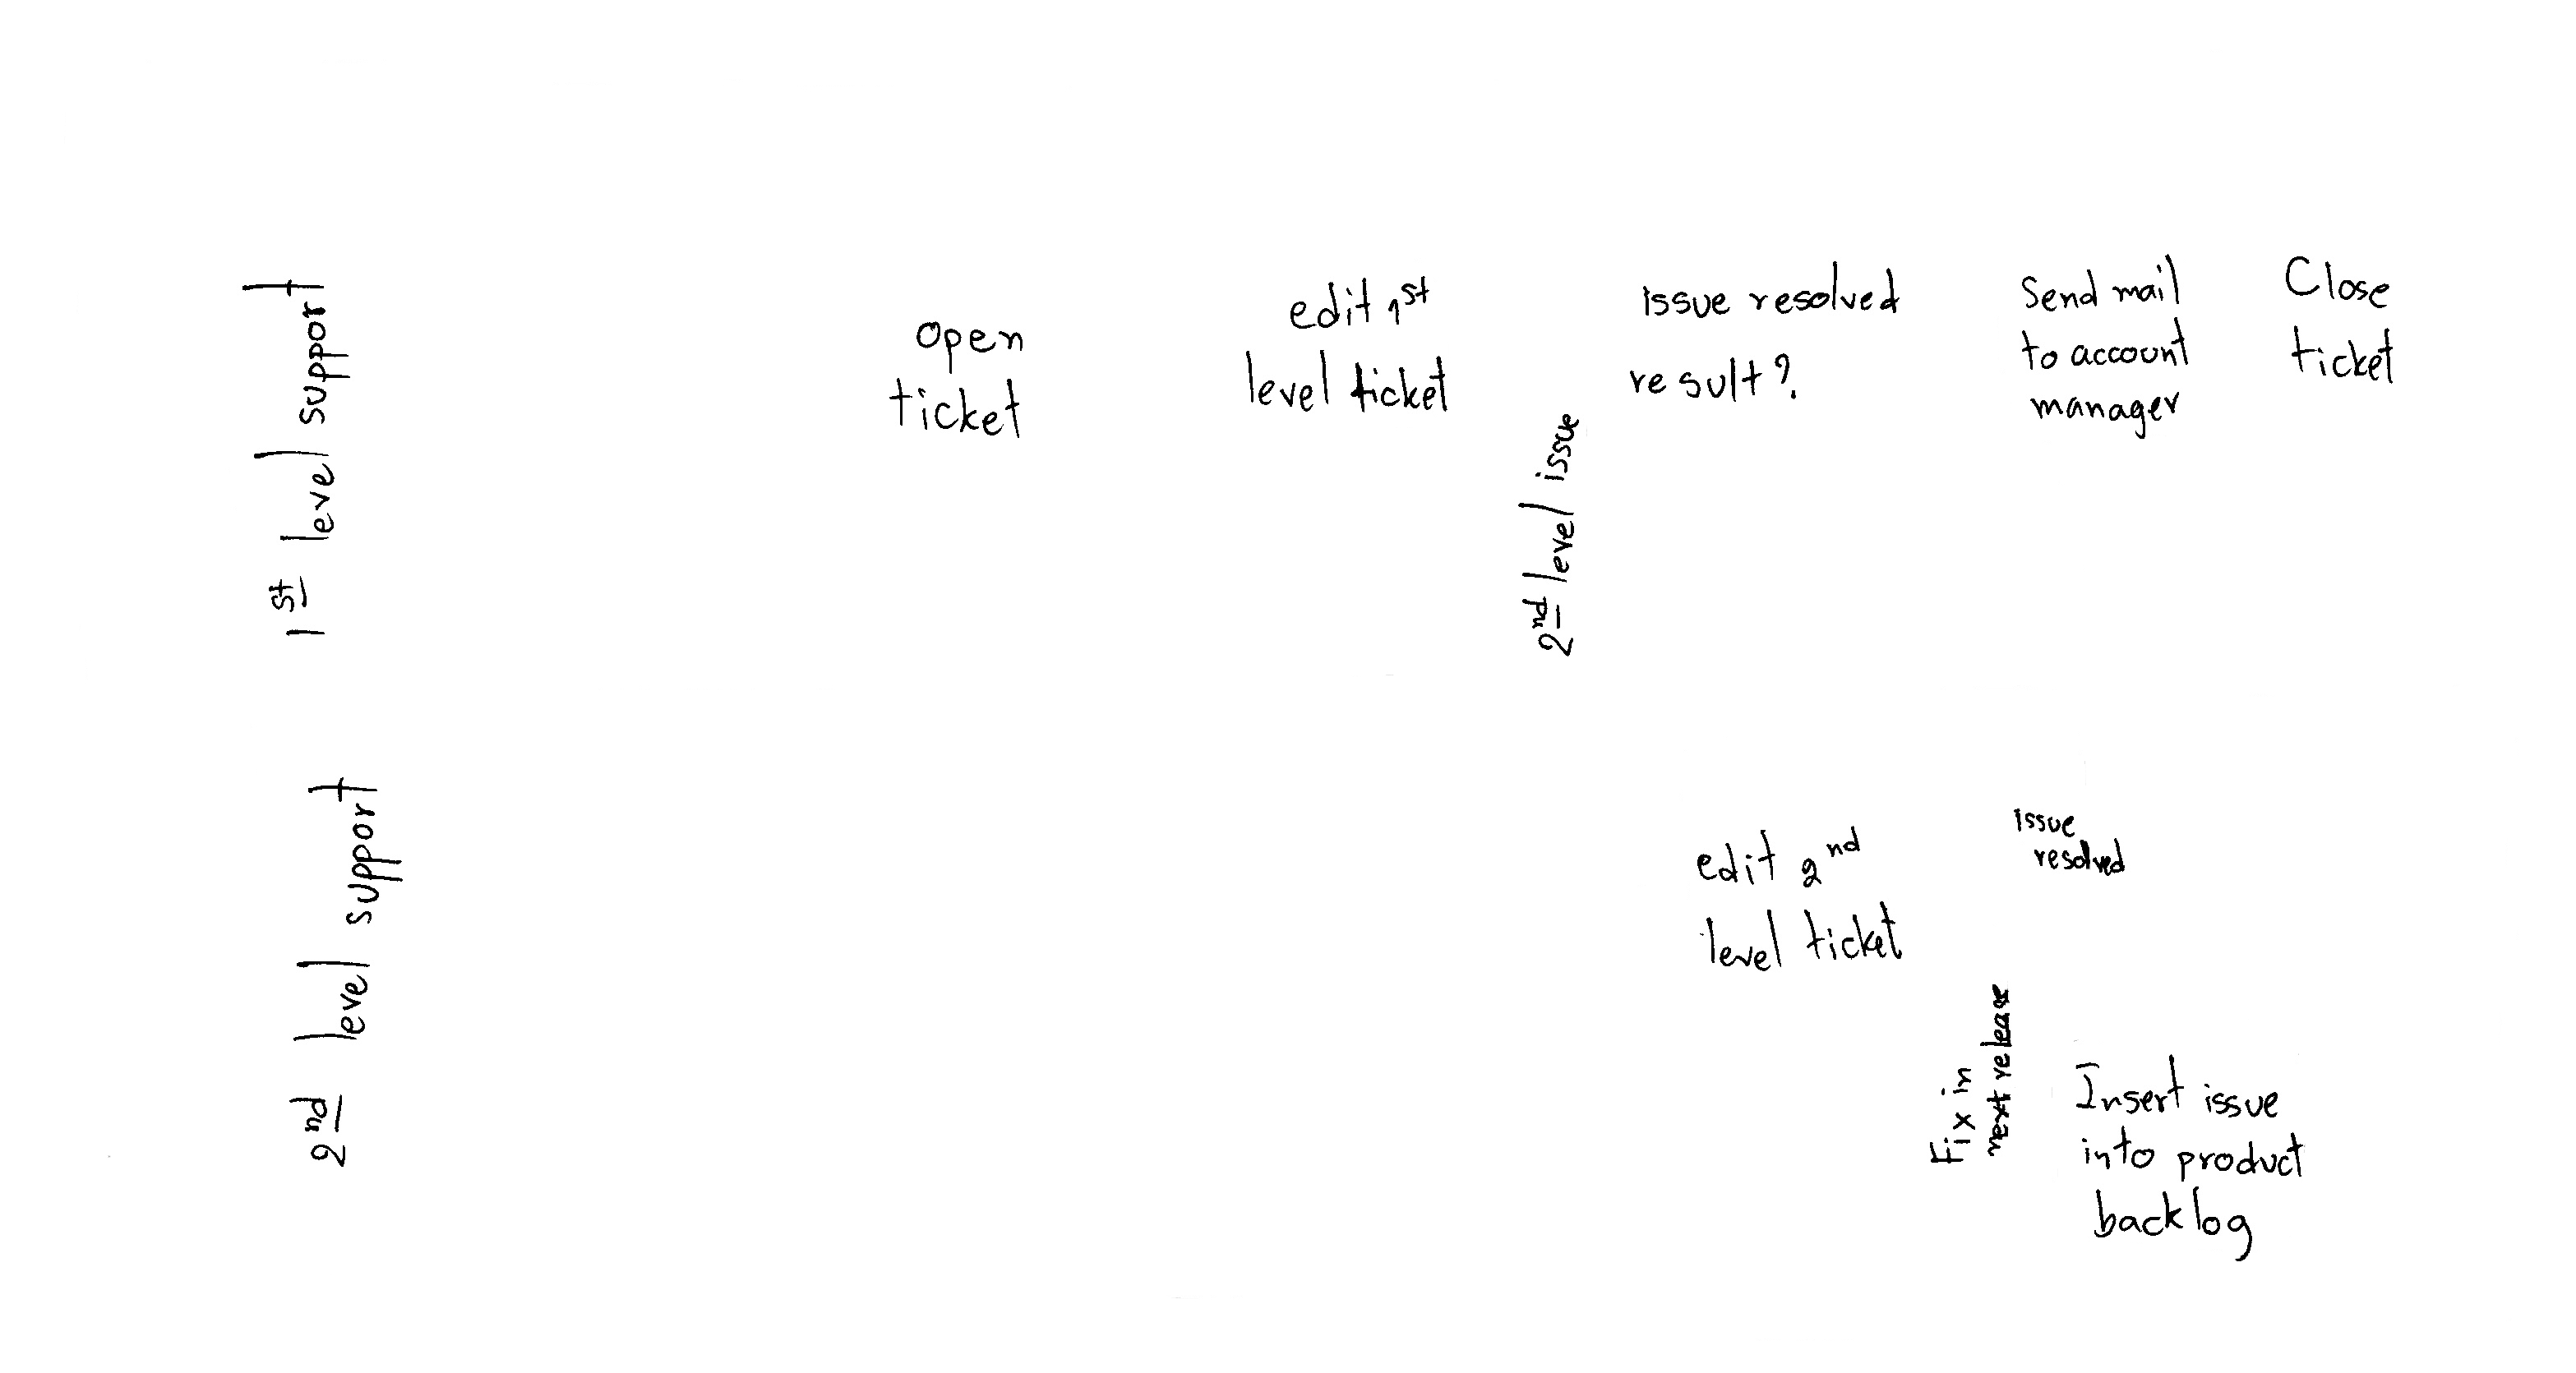 1st level support
open
ticket
edit 1st
level ticket
2nd level issue
issue resolved
result?
Send mail
to account
manager
Close
ticket
2nd level support
edit 2nd
level ticket
issue
resolved
Fix in
next release
Insert issue
into product
backlog